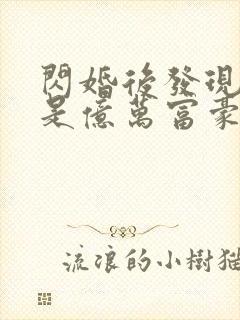 閃婚後發現
是億萬富豪
流浪的小樹猫